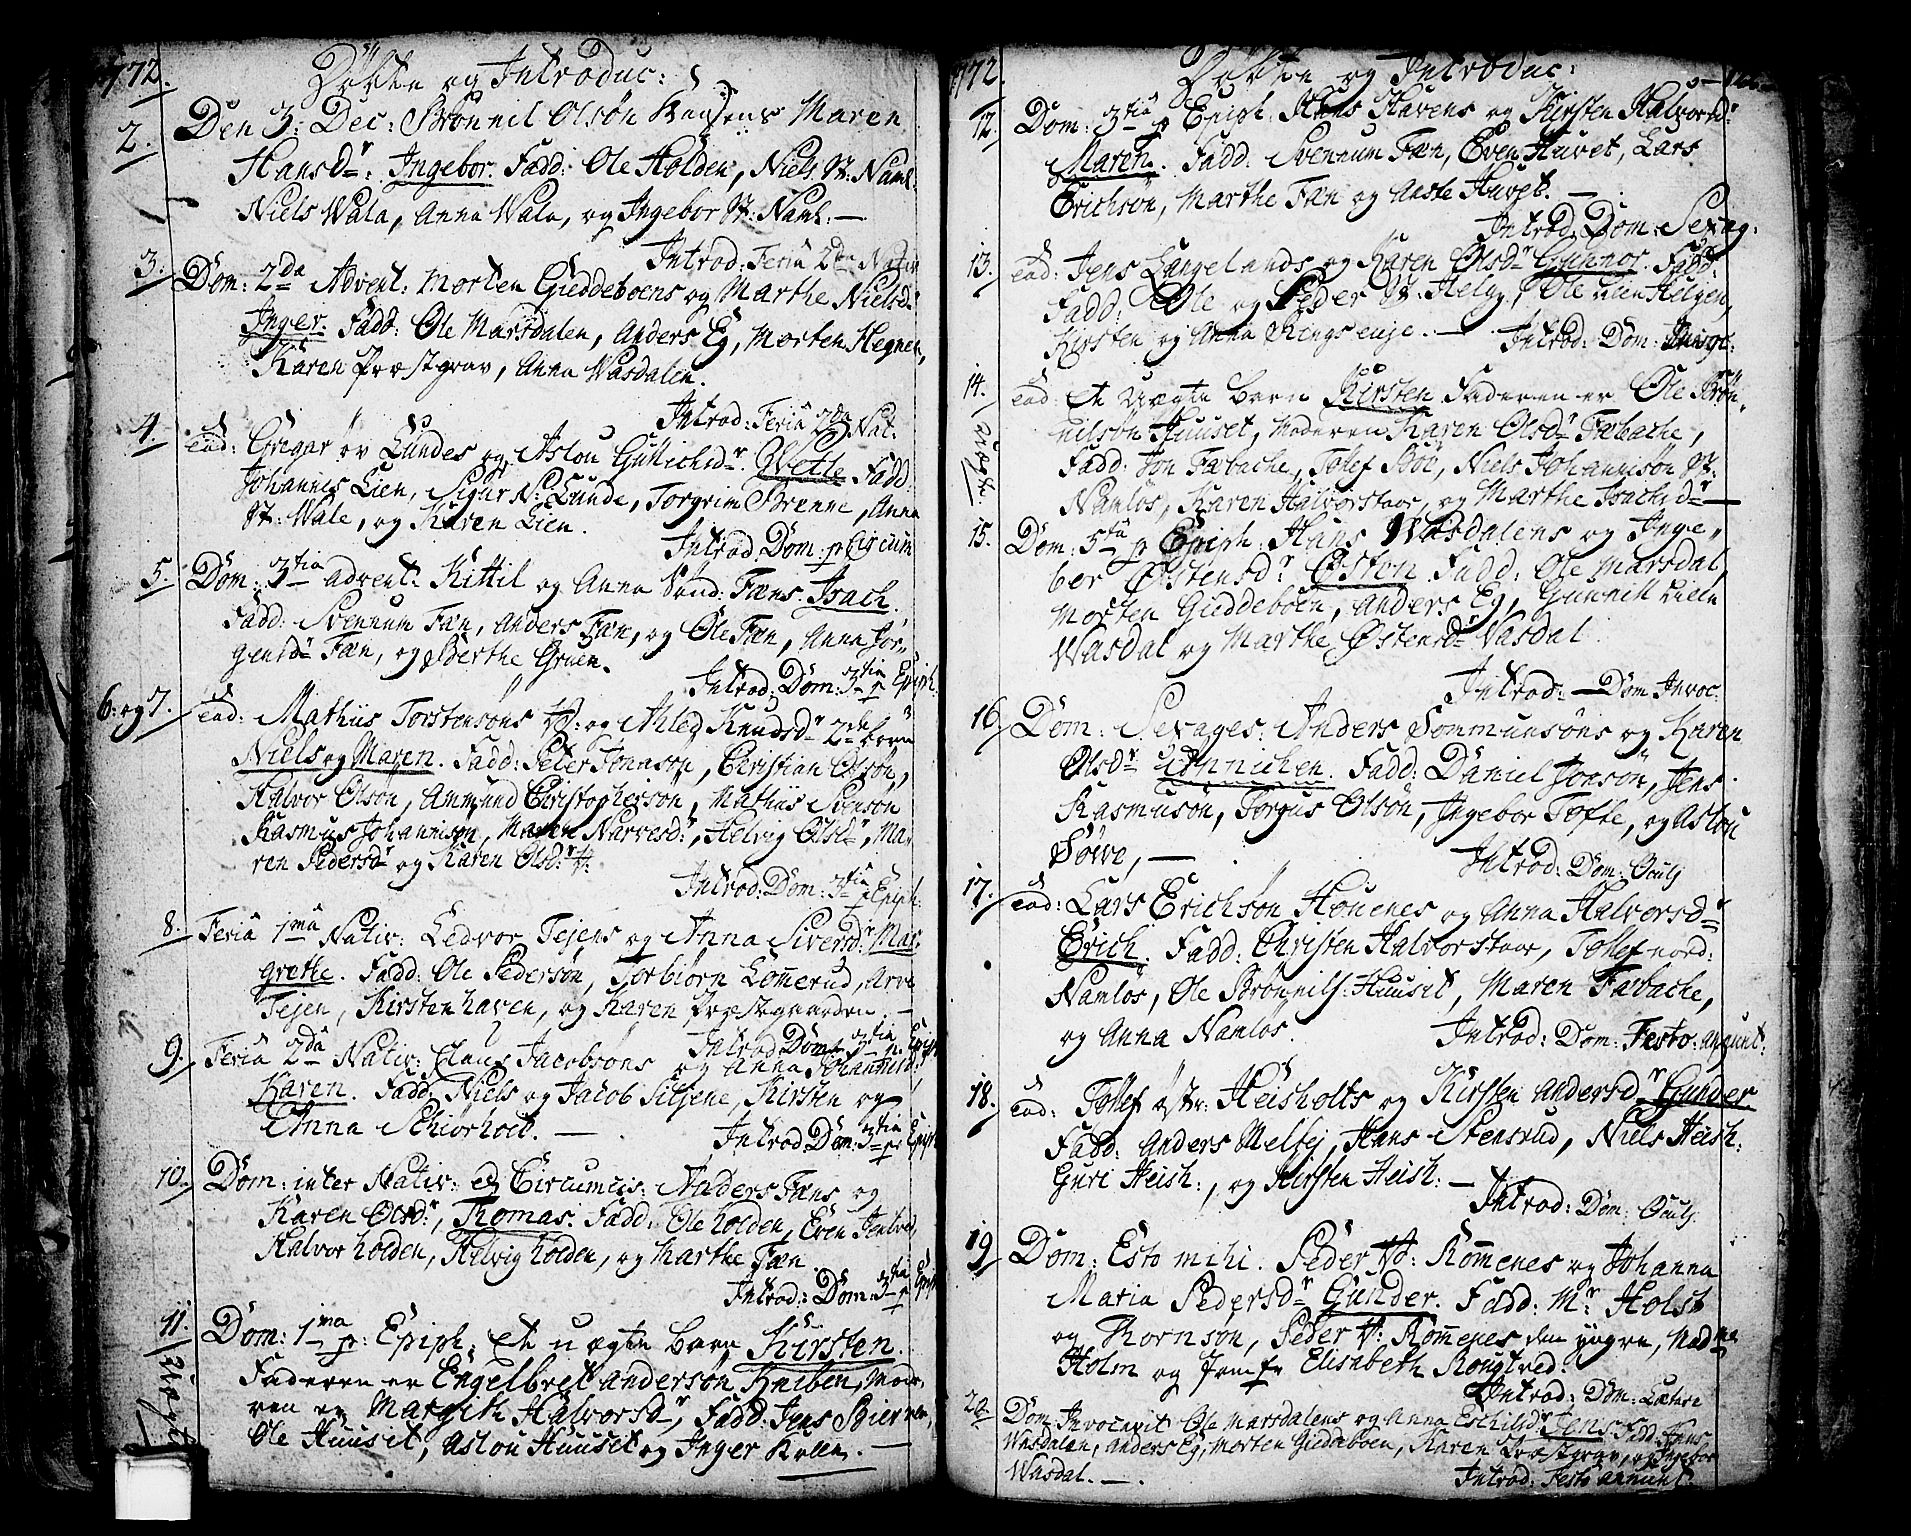 1772. Döbte og Introduc:
2. Den 3: Dec: Brönnil Olsön Maren
Hansdr: Ingebor. Fadd: Ole Holden, Niels N: Naml:
Niels Wala, Anna Wala, og Ingebor N: Naml: —
Introd: Feria 2da Nativ
3. Dom: 2da Advent: Morten Gieddeboens og Marthe Nielsd:
Inger. Fadd: Ole Marsdalen, Anders Eg, Morten Hegnen,
Karen Præstgrav, Anna Wasdalen.
Introd: Feria 2da Nat.
4. ead: Gregar öv Lundes og Aslou Gullichsdr. Wetle Fadd:
Johannis Lien, Sigur N: Lunde, Torgrim Brenne, Anna
N: Wale, og Karen Lien.
Introd Dom: p Circum
5. Dom: 3tia Advent: Kittil og Anna Sönd: Fæns. Isach.
Fadd: Svennum Fæn, Anders Fæn, og Ole Fæn, Anna Jör-
gensdr Fæn, og Berthe Gruen.
Introd: Dom: 3tia p Epiph:
6: og 7. ead: Mathiis Torstensöns og Ahled Knudsdr 2de born
Niels og Maren. Fadd: Peter Tönnsön, Christian Olsön,
Halvor Olsön, Ammund Christophersön, Mathiis Svensön
Rasmus Johannisön, Maren Narvesdr, Helvig Olsdr, Ma-
ren Pedersdr og Karen Olsdr
Introd: Dom: 3tia p Epiph:
8. Feria 1ma Nativ: Ledvor Tejens og Anna Siversdr Mar-
grethe. Fadd: Ole Pedersön, Torbiörn Lömerud, Arve
Tejen, Kirsten haven, og Karen Præstegaarden. —
Introd Dom: 3tia p. Epiph
9. Feria 2da Nativ: Claus Jacobsöns og Anna Johannisd:
Karen. Fadd: Niels og Jacob Siljene, Kirsten og
Anna Schiörholt. —
Introd Dom: 3tia p Epiph
10. Dom: inter Nativ: et Circumcis: Anders Fæns og
Karen Olsdr, Thomas. Fadd: Ole holden, Even Jentved,
Halvor holden, Helvig holden, og Marthe Fæn.
Introd: Dom: 3tia p Epiph
11. Uægte Dom: 1ma p: Epiph: et uægte barn Kirsten.
Faderen er Engelbret Andersön Kniben, Mode-
ren er Margith Halvorsdr, Fadd: Jens
Ole Huuset, Aslou Huuset og Inger Kolen. —
1772. Döbte og Introduc:
12. Dom: 3tia p Epiph: Hans Havens og Kirsten Halvorsdr
Maren. Fadd: Svennum Fæn, Even Huset, Lars
Erichsön, Marthe Fæn og Aaste Huset. —
Introd: Dom: Sexag:
13. ead: Jens Langelands og Karen Olsdr Gunnor. Fadd:
Fadd: Ole og Peder N: Helgj, Ole Lien Helgen,
Kirsten og Anna Ringsenje. — Introd: Dom:
14. uægte ead: et uægte barn Kirsten Faderen er Ole Brön-
nilsön Huuset, Moderen Karen Olsdr Fæbache,
Fadd: Jon Fæbache, Tollef Böe, Niels Johannisön N:
Namlös, Karen Halvorstaar, og Marthe Isachsdr —
15. Dom: 5ta p Epiph: Hans Wasdalens og Inge-
ber Östensdr Östen Fadd: Ole Marsdal,
Morten Gieddeboen, Anders Eg, Gunnill Lien
Wasdal og Marthe Östensdr Vasdal.
Introd: — Dom Invoc:
16. Dom: Sexages: Anders Sommunsöns og Karen
Olsdr Fadd: Daniel Jonsön, Jens
Rasmusön, Torgus Olsön, Ingebor Tofte, og Aslou
Söwe, —
Introd: Dom: Oculj
17. ead: Lars Erichsön Houenes og Anna Halvorsdr
Erich. Fadd: Christen Halvorstaar, Tollef nord:
Namlös, Ole Brönnils: Huuset, Maren Fæbache,
og Anna Namlös. Introd: Dom: Festo: anunt:
18. ead: Tollef östr: Heisholts og Kirsten Andersdr Gunder
Fadd: Anders Melbj, Hans Stensrud, Niels Heish:
Guri Heish:, og Kirsten Heish: —
Introd: Dom: Oculj.
19. Dom: Esto mihi. Peder V: Romenes og Johanna
Maria Pedersdr Gunder. Fadd: Mr Holst
og Thornsön, Peder V: Romenes den yngre, Madme
Holm og Jomfr Elisabeth Rougtved.
Introd: Dom: Lætare
20. Dom Invocavit Ole Marsdalens og Anna Eschilsdr Jens Fadd: Hans
Wasdalen, Anders Eg, Morten Gieddeboen, Karen Præstgrav, og Ingebor
Wasdal. — Introd: Festo anunt: